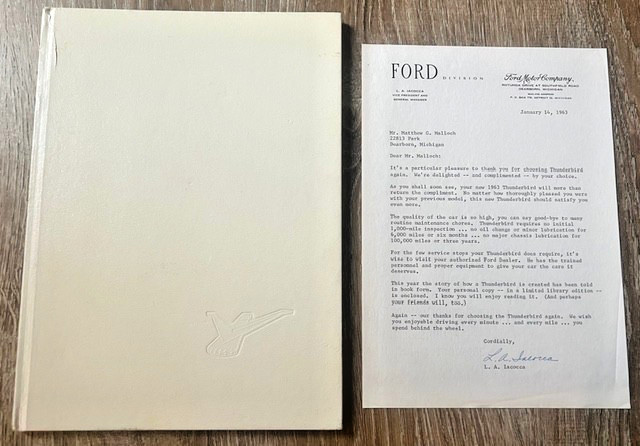 FORD DIVISION
Ford Motor Company,
L. A. IACOCCA
VICE PRESIDENT AND
GENERAL MANAGER
ROTUNDA DRIVE AT SOUTHFIELD ROAD
DEARBORN, MICHIGAN
MAILING ADDRESS
January 14, 1963
Mr. Matthew G. Malloch
22813 Park
Dearborn, Michigan
Dear Mr. Malloch:
It's a particular pleasure to thank you for choosing Thunderbird
again. We're delighted -- and complimented -- by your choice.
As you shall soon see, your new 1963 Thunderbird will more than
return the compliment. No matter how thoroughly pleased you were
with your previous model, this new Thunderbird should satisfy you
even more.
The quality of the car is so high, you can say good-bye to many
routine maintenance chores. Thunderbird requires no initial
1,000-mile inspection ... no oil change or minor lubrication for
6,000 miles or six months ... no major chassis lubrication for
100,000 miles or three years.
For the few service stops your Thunderbird does require, it's
wise to visit your authorized Ford Dealer. He has the trained
personnel and proper equipment to give your car the care it
deserves.
This year the story of how a Thunderbird is created has been told
in book form. Your personal copy -- in a limited library edition --
is enclosed. I know you will enjoy reading it. (And perhaps
your friends will, too.)
Again -- our thanks for choosing the Thunderbird again. We wish
you enjoyable driving every minute ... and every mile ... you
spend behind the wheel.
Cordially,
L. A. Iacocca
L. A. Iacocca